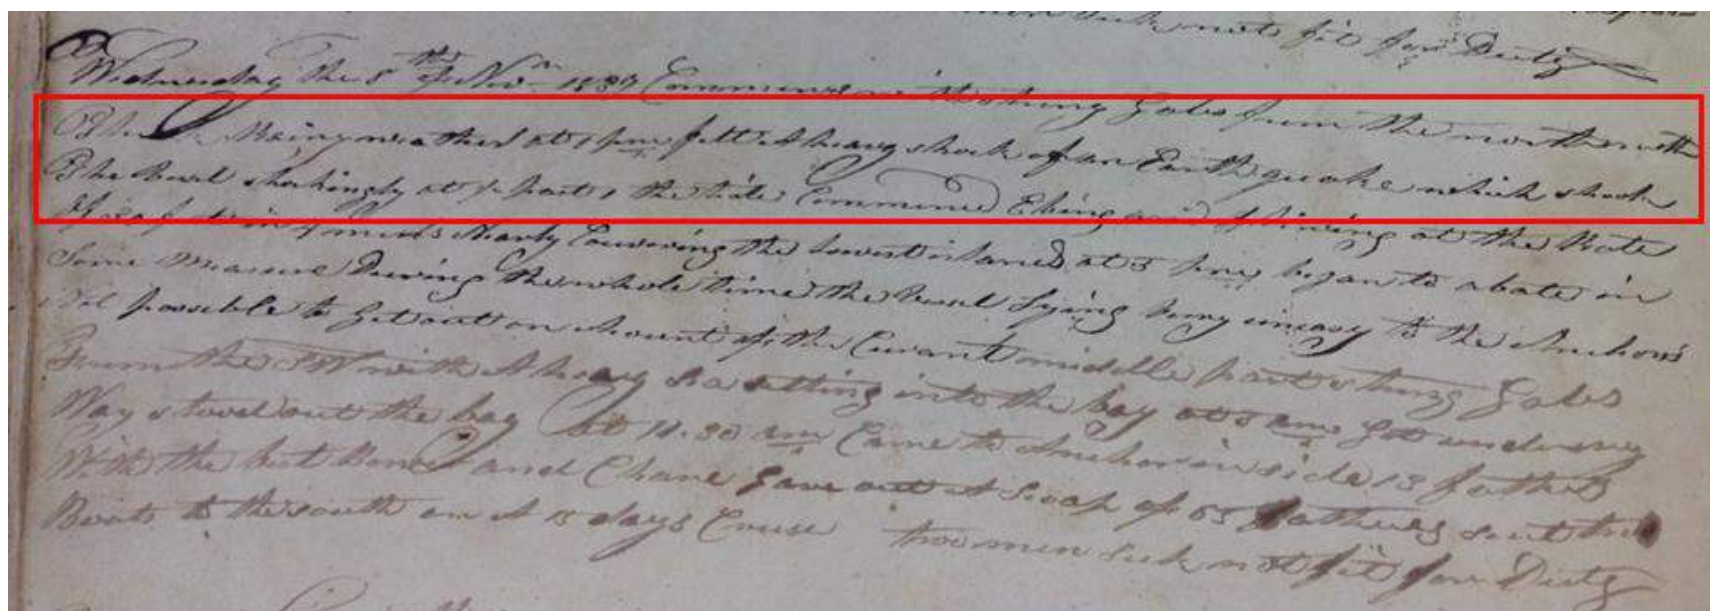 men Sick not fit for Duty
Wednesday the 8th of Nov 1837 Commences with strong Gales from the northern with
Rainy weather at 1 pm felt A heavy shock of an Earth quake which shook
The Vesel shockingly at ½ past 1 the tide Commenced Ebing and flowing at the Rate
of feet in mints Nearly Couvering the lowest island at 5 pm began to abate in
Some Measure During the whole time the Vesel Lying very uneasy to the Anchors
Not possible to Get out on Acount of the Curant middle part strong Gales
From the SW with A heavy Sea setting into the bay at 5 am Got underway
Way stood out the bay At 11.30 am Came to Anchor in side 13 fathes
With the best Bower and Chane Gave out A Scoap of 55 fathoms Sent two
Boats to the south on A 15 days Cruse two men Sick not fit for Duty